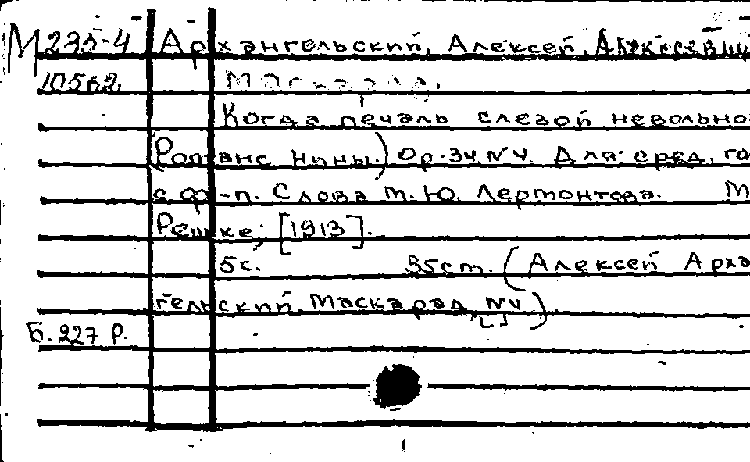 М 235-4 Архангельский, Алексей Алексеевич
10562. Маскарад.
Когда печаль слезой невольно
(Романс Нины.) Ор. 34 № 4. Для сред. го
с ф-п. Слова М. Ю. Лермонтова. М
Решке, [1913].
5 с. 35 cm. (Алексей Арха
гельский. Маскарад, № 4)
Б. 227 Р.